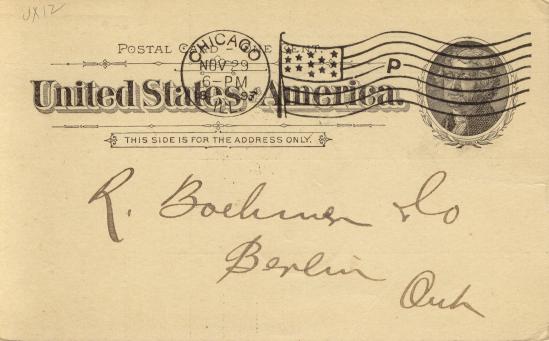 UX12
POSTAL CARD – ONE CENT.
CHICAGO
NOV 29
6-PM
ILL.
P
United States of America.
THIS SIDE IS FOR THE ADDRESS ONLY.
R. Boehmer & Co
Berlin
Ont